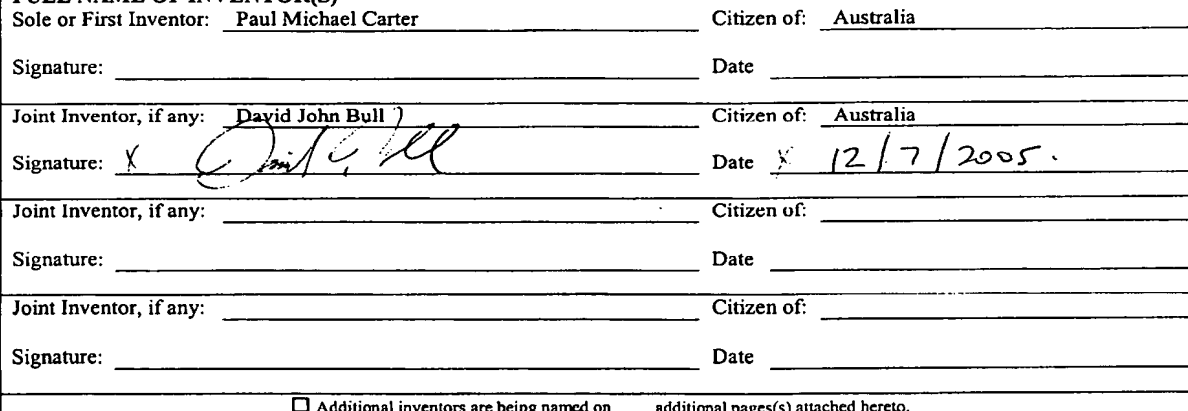 FULL NAME OF INVENTOR(S)
Sole or First Inventor: Paul Michael Carter Citizen of: Australia
Signature: Date
Joint Inventor, if any: David John Bull Citizen of: Australia
Signature: X Date X 12/7/2005.
Joint Inventor, if any: Citizen of:
Signature: Date
Joint Inventor, if any: Citizen of:
Signature: Date
Additional inventors are being named on additional pages(s) attached hereto.